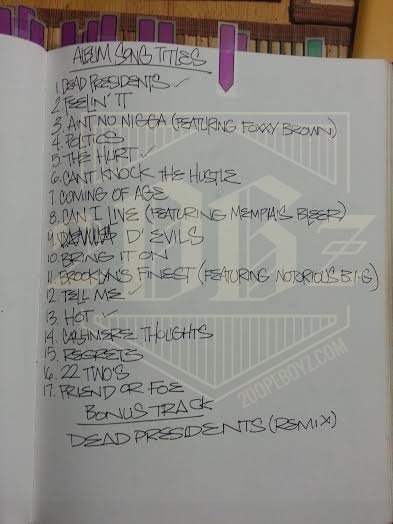 ALBUM SONG TITLES
1. DEAD PRESIDENTS ✓
2. FEELIN' IT
3. AINT NO NIGGA (FEATURING FOXXY BROWN)
4. POLITICS
5. THE HURT ✓
6. CANT KNOCK THE HUSTLE
7. COMING OF AGE
8. CAN I LIVE (FEATURING MEMPHIS BLEEK)
9. D' EVILS
10. BRING IT ON
11. BROOKLYN'S FINEST (FEATURING NOTORIOUS B.I.G)
12. TELL ME ✓
13. HOT ✓
14. CASHMERE THOUGHTS
15. REGRETS
16. 22 TWO'S
17. FRIEND OR FOE
BONUS TRACK
DEAD PRESIDENTS (REMIX)
2DOPEBOYZ.COM